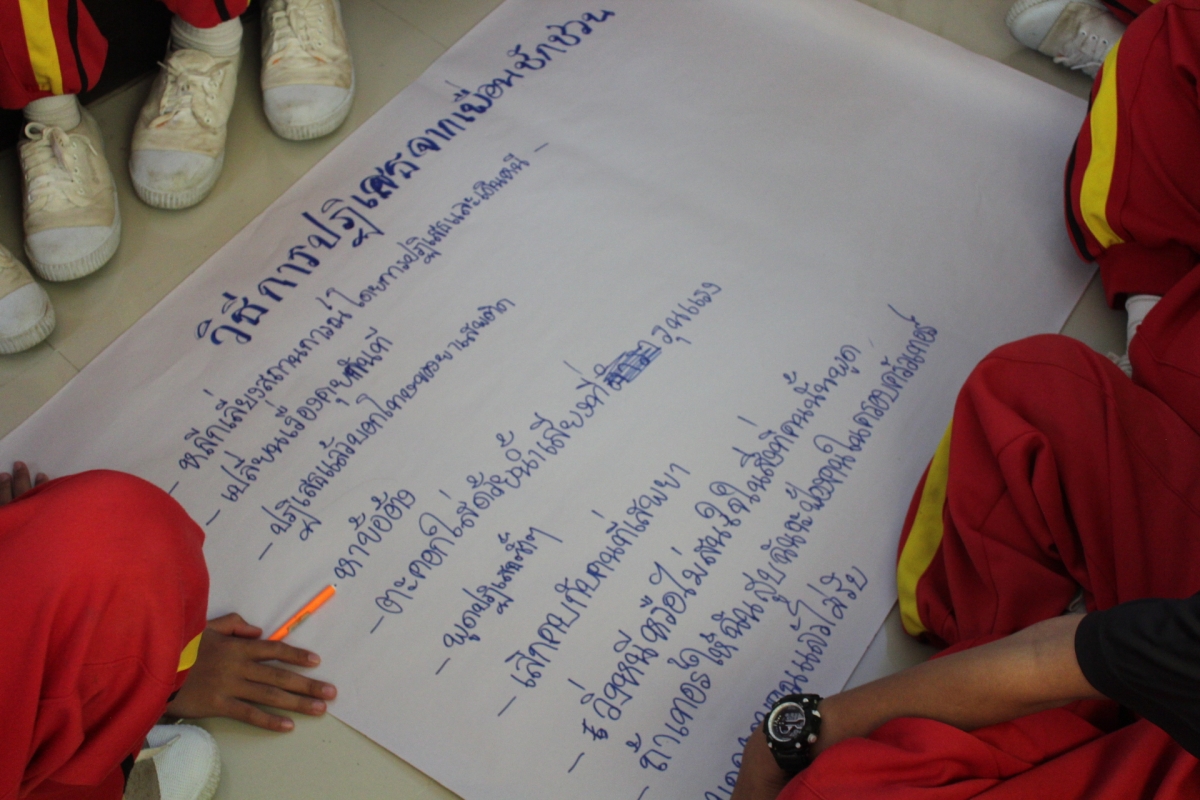 วิธีการปฏิเสธจากเพื่อนชักชวน
- หลีกเลี่ยงสถานการณ์ โดยการปฏิเสธและเดินหนี -
- เปลี่ยนเรื่องคุยทันที
- ปฏิเสธแล้วบอกโทษของยาเสพติด
- หาข้ออ้าง
- ตะคอกใส่ด้วยน้ำเสียงที่ รุนแรง
- พูดปฏิเสธซ้ำๆ
- เลิกคบกับคนที่เสพยา
- วิ่งหนี หรือไม่สนใจในสิ่งที่คนนั้นพูด
- ถ้าเธอให้ฉันสูบฉันจะฟ้องคนในครอบครัวเธอ